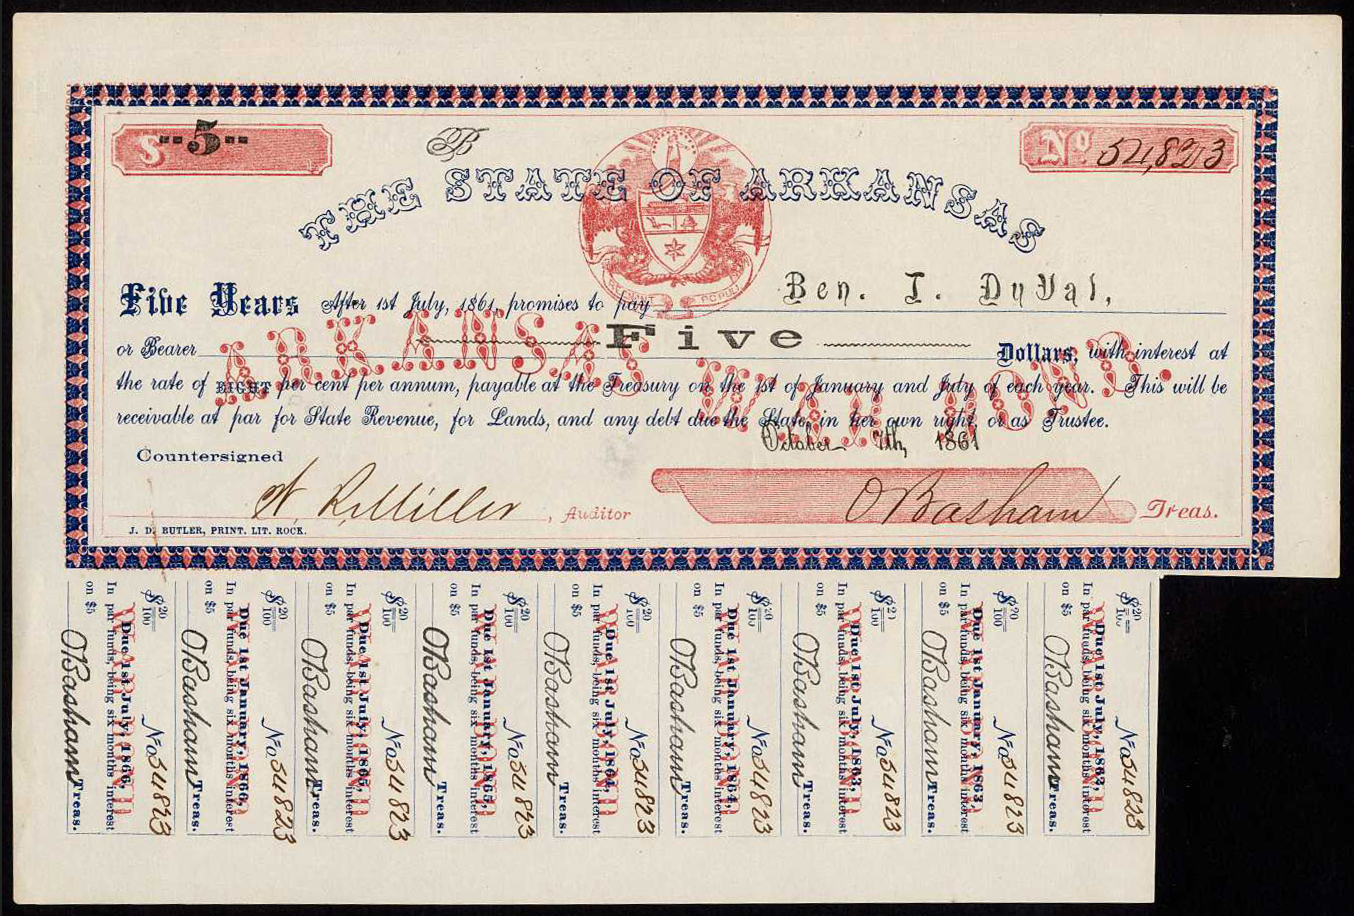 $ --5--
B
No 54,823
THE STATE OF ARKANSAS
REGNANT POPULI
Five Years After 1st July, 1861, promises to pay Ben. T. DuVal,
or Bearer Five Dollars, with interest at
the rate of EIGHT per cent per annum, payable at the Treasury on the 1st of January and July of each year. This will be
receivable at par for State Revenue, for Lands, and any debt due the State, in her own right, or as Trustee.
ARKANSAS WAR BOND.
October 7th, 1861
Countersigned
W. R. Miller, Auditor
O Basham Treas.
J. D. BUTLER, PRINT. LIT. ROCK.
$20/100 No 54823
WAR BOND
Due 1st July, 1866,
In par funds, being six months interest
on $5 O Basham Treas.
$20/100 No 54823
WAR BOND
Due 1st January, 1866,
In par funds, being six months interest
on $5 O Basham Treas.
$20/100 No 54823
WAR BOND
Due 1st July, 1865,
In par funds, being six months interest
on $5 O Basham Treas.
$20/100 No 54823
WAR BOND
Due 1st January, 1865,
In par funds, being six months interest
on $5 O Basham Treas.
$20/100 No 54823
WAR BOND
Due 1st July, 1864,
In par funds, being six months interest
on $5 O Basham Treas.
$20/100 No 54823
WAR BOND
Due 1st January, 1864,
In par funds, being six months interest
on $5 O Basham Treas.
$20/100 No 54823
WAR BOND
Due 1st July, 1863,
In par funds, being six months interest
on $5 O Basham Treas.
$20/100 No 54823
WAR BOND
Due 1st January, 1863,
In par funds, being six months interest
on $5 O Basham Treas.
$20/100 No 54823
WAR BOND
Due 1st July, 1862,
In par funds, being six months interest
on $5 O Basham Treas.